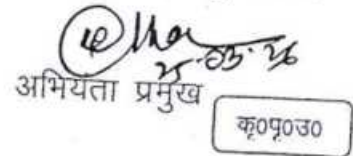 25.03.26
अभियंता प्रमुख
कृ०पृ०उ०